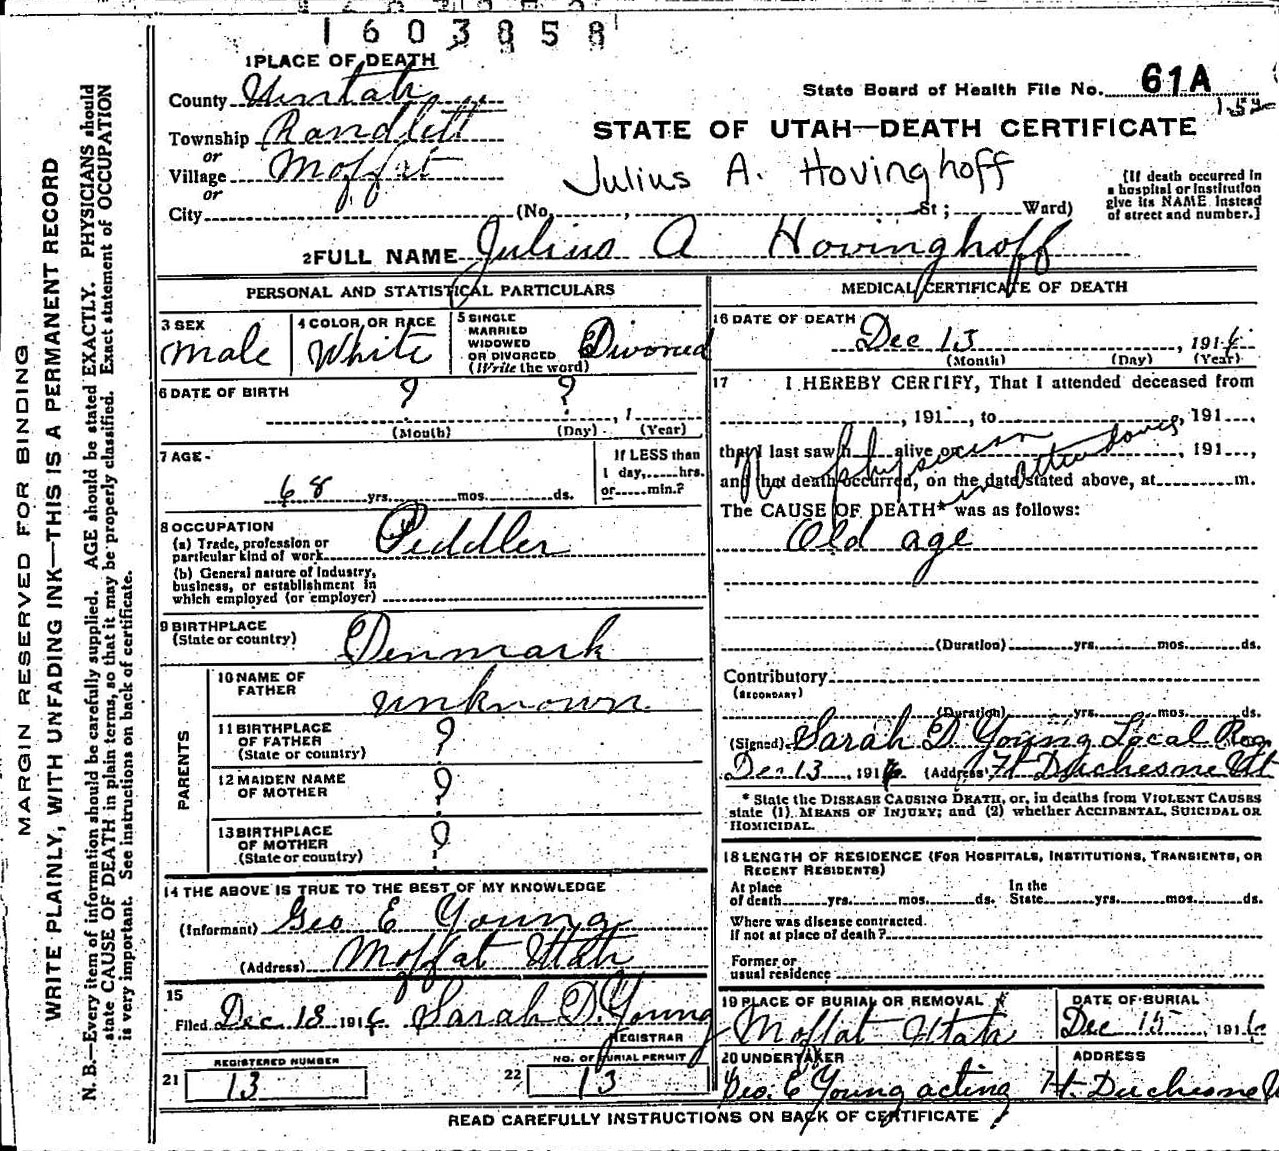 1603858
1 PLACE OF DEATH
County Uintah
State Board of Health File No. 61A
Township Randlett
or
STATE OF UTAH—DEATH CERTIFICATE
Village Moffat
or
Julius A. Hovinghoff
City (No. , St; Ward)
(If death occurred in
a hospital or institution
give its NAME instead
of street and number.]
2 FULL NAME Julius A Hovinghoff
PERSONAL AND STATISTICAL PARTICULARS
3 SEX
Male
4 COLOR OR RACE
White
5 SINGLE
MARRIED
WIDOWED
OR DIVORCED
(Write the word)
Divorced
6 DATE OF BIRTH
? ?
, 1
(Month) (Day) (Year)
7 AGE
68 yrs. mos. ds.
If LESS than
1 day, hrs.
or min.?
8 OCCUPATION
(a) Trade, profession or
particular kind of work Peddler
(b) General nature of industry,
business, or establishment in
which employed (or employer)
9 BIRTHPLACE
(State or country)
Denmark
PARENTS
10 NAME OF
FATHER
unknown
11 BIRTHPLACE
OF FATHER
(State or country)
?
12 MAIDEN NAME
OF MOTHER
?
13 BIRTHPLACE
OF MOTHER
(State or country)
?
14 THE ABOVE IS TRUE TO THE BEST OF MY KNOWLEDGE
(Informant) Geo E Young
(Address) Moffat Utah
15
Filed Dec 18 1916 Sarah D. Young
REGISTRAR
REGISTERED NUMBER
21 13
NO. OF BURIAL PERMIT
22 13
MEDICAL CERTIFICATE OF DEATH
16 DATE OF DEATH
Dec 13 , 1916
(Month) (Day) (Year)
17 I HEREBY CERTIFY, That I attended deceased from
, 191 , to , 191 ,
that I last saw h alive on , 191 ,
and that death occurred, on the date stated above, at m.
No physician in attendance
The CAUSE OF DEATH* was as follows:
Old age
(Duration) yrs. mos. ds.
Contributory
(SECONDARY)
(Duration) yrs. mos. ds.
(Signed) Sarah D Young Local Reg
Dec 13 , 1916 (Address) Ft Duchesne Ut
* State the DISEASE CAUSING DEATH, or, in deaths from VIOLENT CAUSES
state (1) MEANS OF INJURY; and (2) whether ACCIDENTAL, SUICIDAL OR
HOMICIDAL.
18 LENGTH OF RESIDENCE (FOR HOSPITALS, INSTITUTIONS, TRANSIENTS, OR
RECENT RESIDENTS)
At place
of death yrs. mos. ds.
In the
State yrs. mos. ds.
Where was disease contracted
if not at place of death?
Former or
usual residence
19 PLACE OF BURIAL OR REMOVAL
Moffat Utah
DATE OF BURIAL
Dec 15 , 1916
20 UNDERTAKER
Geo. E Young acting
ADDRESS
Ft. Duchesne U
READ CAREFULLY INSTRUCTIONS ON BACK OF CERTIFICATE
MARGIN RESERVED FOR BINDING
WRITE PLAINLY, WITH UNFADING INK—THIS IS A PERMANENT RECORD
N. B.—Every item of information should be carefully supplied. AGE should be stated EXACTLY. PHYSICIANS should
state CAUSE OF DEATH in plain terms, so that it may be properly classified. Exact statement of OCCUPATION
is very important. See instructions on back of certificate.